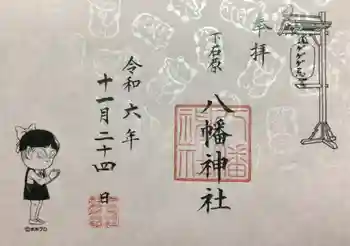 奉拝
下石原
八幡神社
八幡
神社
令和六年
十一月二十四日
©水木プロ